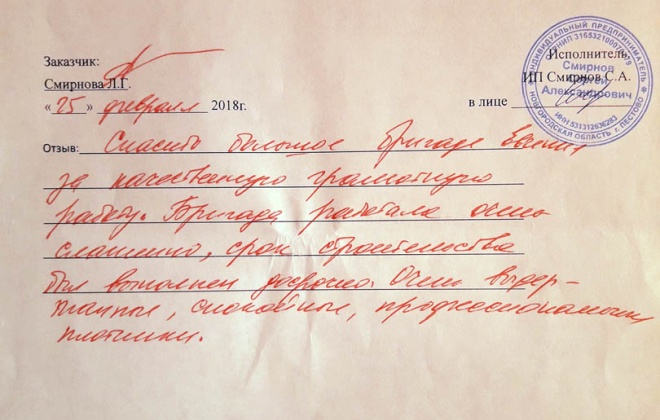 Заказчик:
Смирнова Л.Г.
«25» февраля 2018г.
Исполнитель:
ИП Смирнов С.А.
в лице
ИНДИВИДУАЛЬНЫЙ ПРЕДПРИНИМАТЕЛЬ
Смирнов
Сергей
Александрович
ИНН 531312636283
НОВГОРОДСКАЯ ОБЛАСТЬ г. ПЕСТОВО
Отзыв: Спасибо большое бригаде Евгения
за качественную грамотную
работу. Бригада работала очень
слаженно, срок строительства
был выполнен досрочно. Очень выдер-
жанные, спокойные, профессиональные
плотники.